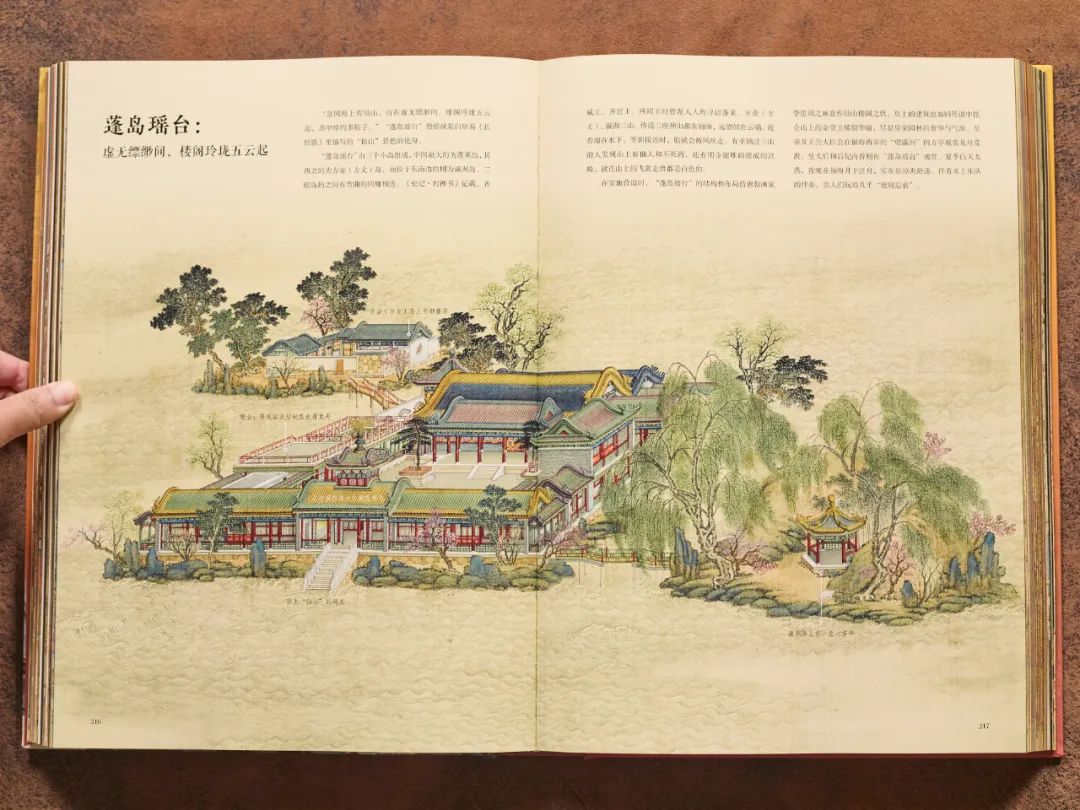 蓬岛瑶台：
虚无缥缈间，楼阁玲珑五云起
“忽闻海上有仙山，山在虚无缥缈间。楼阁玲珑五云
起，其中绰约多仙子。”“蓬岛瑶台”恐怕就是白居易《长
恨歌》里描写的“仙山”景色的化身。
“蓬岛瑶台”由三个小岛组成，中间最大的为蓬莱岛，其
西北的为方壶（方丈）岛，而位于东南边的则为瀛洲岛，三
座岛屿之间有弯曲的回廊相连。《史记·封禅书》记载，齐
威王、齐宣王、燕昭王时曾派人入海寻访蓬莱、方壶（方
丈）、瀛洲三山。传说三座神山都在渤海，远望似在云端，近
看却在水下，等到接近时，船就会被风吹走。有幸到过三山
的人发现山上有仙人和不死药，还有用金银堆砌建成的宫
殿，就连山上的飞禽走兽都是白色的。
在实地营设时，“蓬岛瑶台”的结构和布局仿唐朝画家
李思训之画意作仙山楼阁之状，岛上的建筑也如同传说中昆
仑山上的金堂玉楼般华丽，尽显皇家园林的奢华与气派。皇
帝及王公大臣会在福海西岸的“望瀛洲”四方亭观赏龙舟竞
渡，皇太后和后妃内眷则在“蓬岛瑶台”观赏。夏季白天太
热，夜晚在福海月下泛舟，实在是凉爽舒适。伴着水上乐队
的伴奏，贵人们玩得几乎“废寝忘食”。
方壶（方丈）岛上有御膳房
登上“仙山”的码头
瀛洲岛上有一座六方亭
216
217